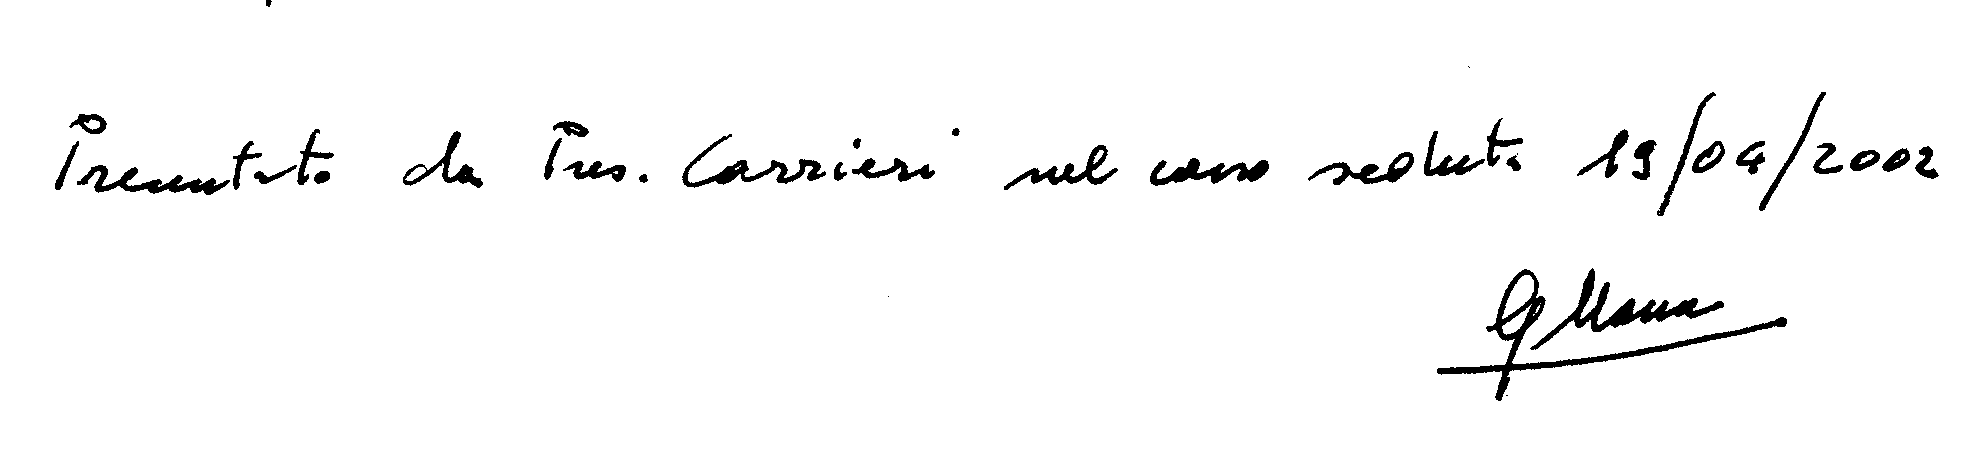 Presentato da Pres. Carrieri nel corso seduta 19/04/2002